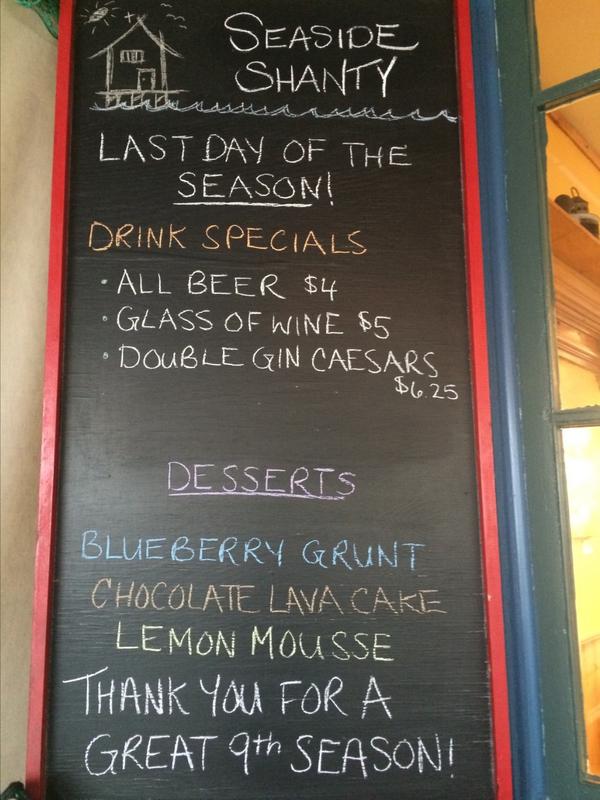 SEASIDE
SHANTY
LAST DAY OF THE
SEASON!
DRINK SPECIALS
• ALL BEER $4
• GLASS OF WINE $5
• DOUBLE GIN CAESARS
$6.25
DESSERTS
BLUEBERRY GRUNT
CHOCOLATE LAVA CAKE
LEMON MOUSSE
THANK YOU FOR A
GREAT 9th SEASON!